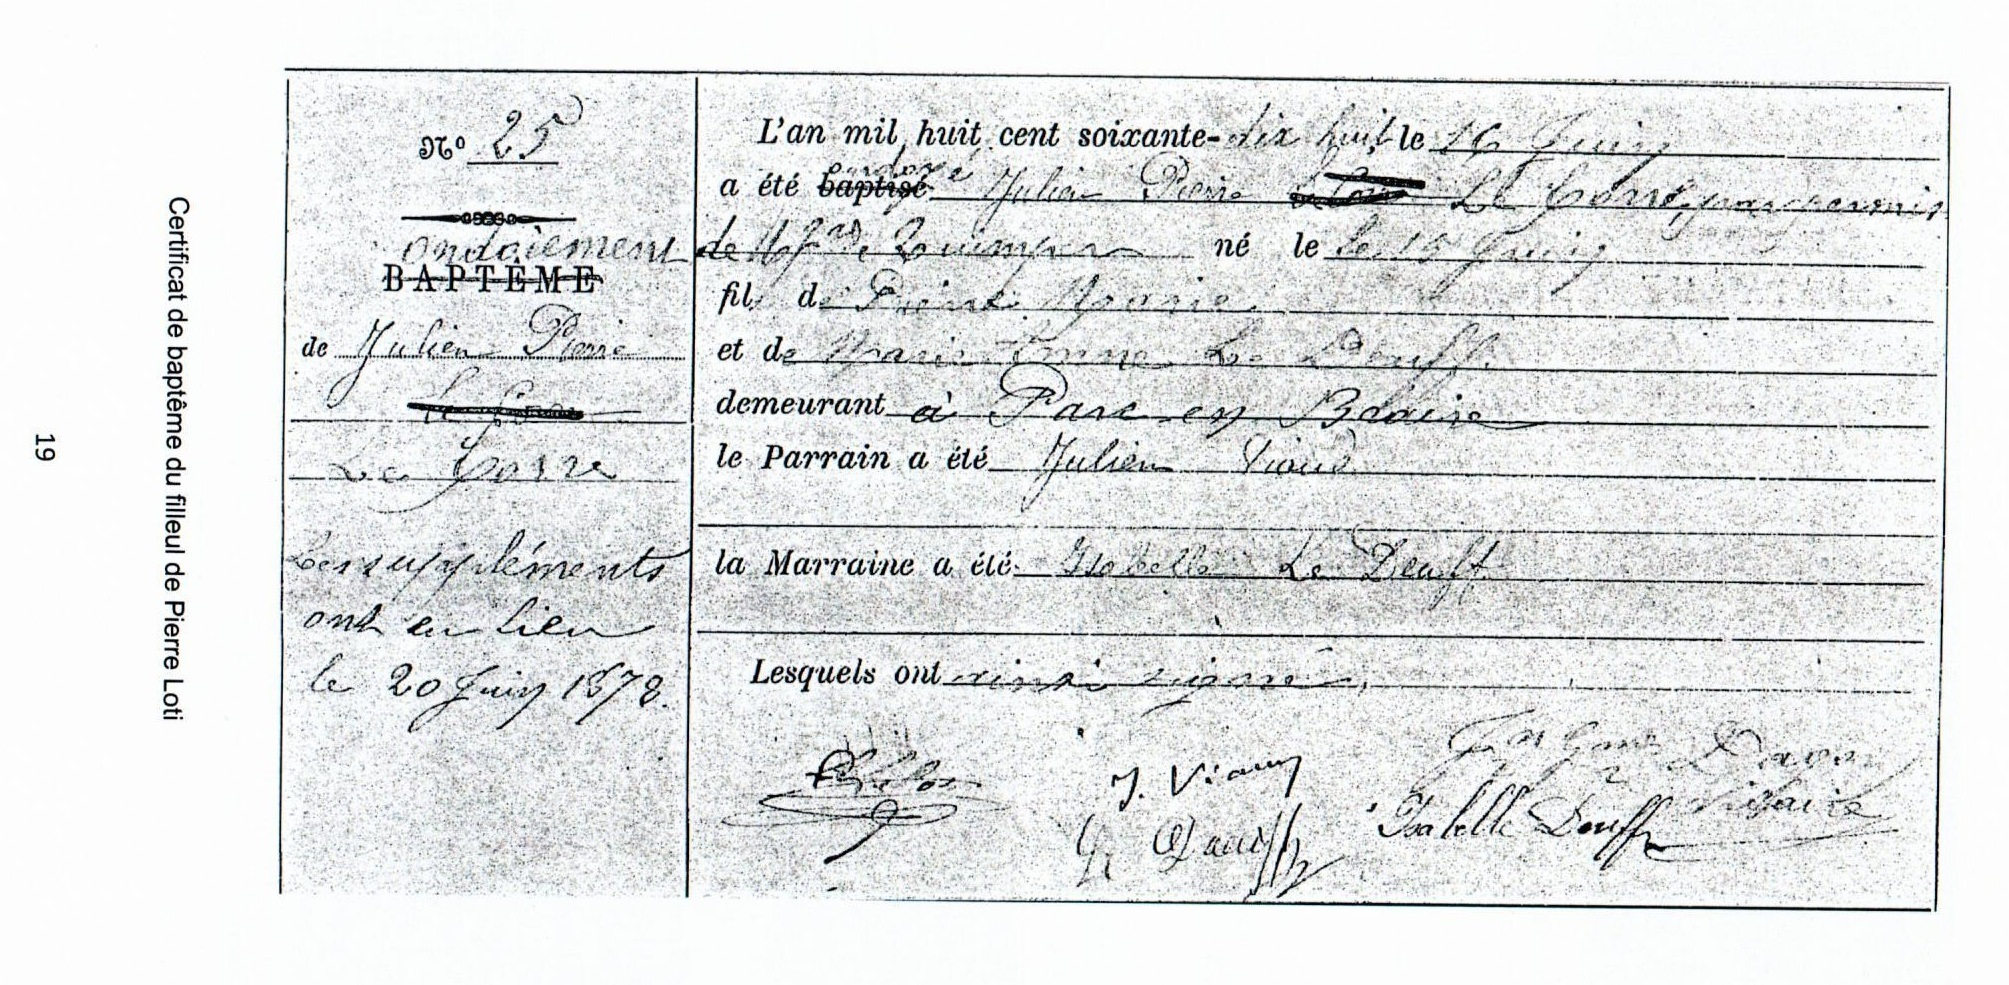 Certificat de baptême du filleul de Pierre Loti
19
N° 25
ondoiement
BAPTÊME
de Julien Pierre
Le Corre
Les suppléments
ont eu lieu
le 20 Juin 1878.
L'an mil huit cent soixante-dix huit, le 16 Juin
a été baptisé ondoyé Julien Pierre Le Corre, par permis
de Mgr de Quimper né le le 15 Juin
fils de Pierre Marie
et de Marie Le Deuff
demeurant à Parc en
le Parrain a été Julien Viaud
la Marraine a été Isabelle Le Deuff
Lesquels ont ainsi signé,
J. Viaud
Isabelle Deuff
Vicaire